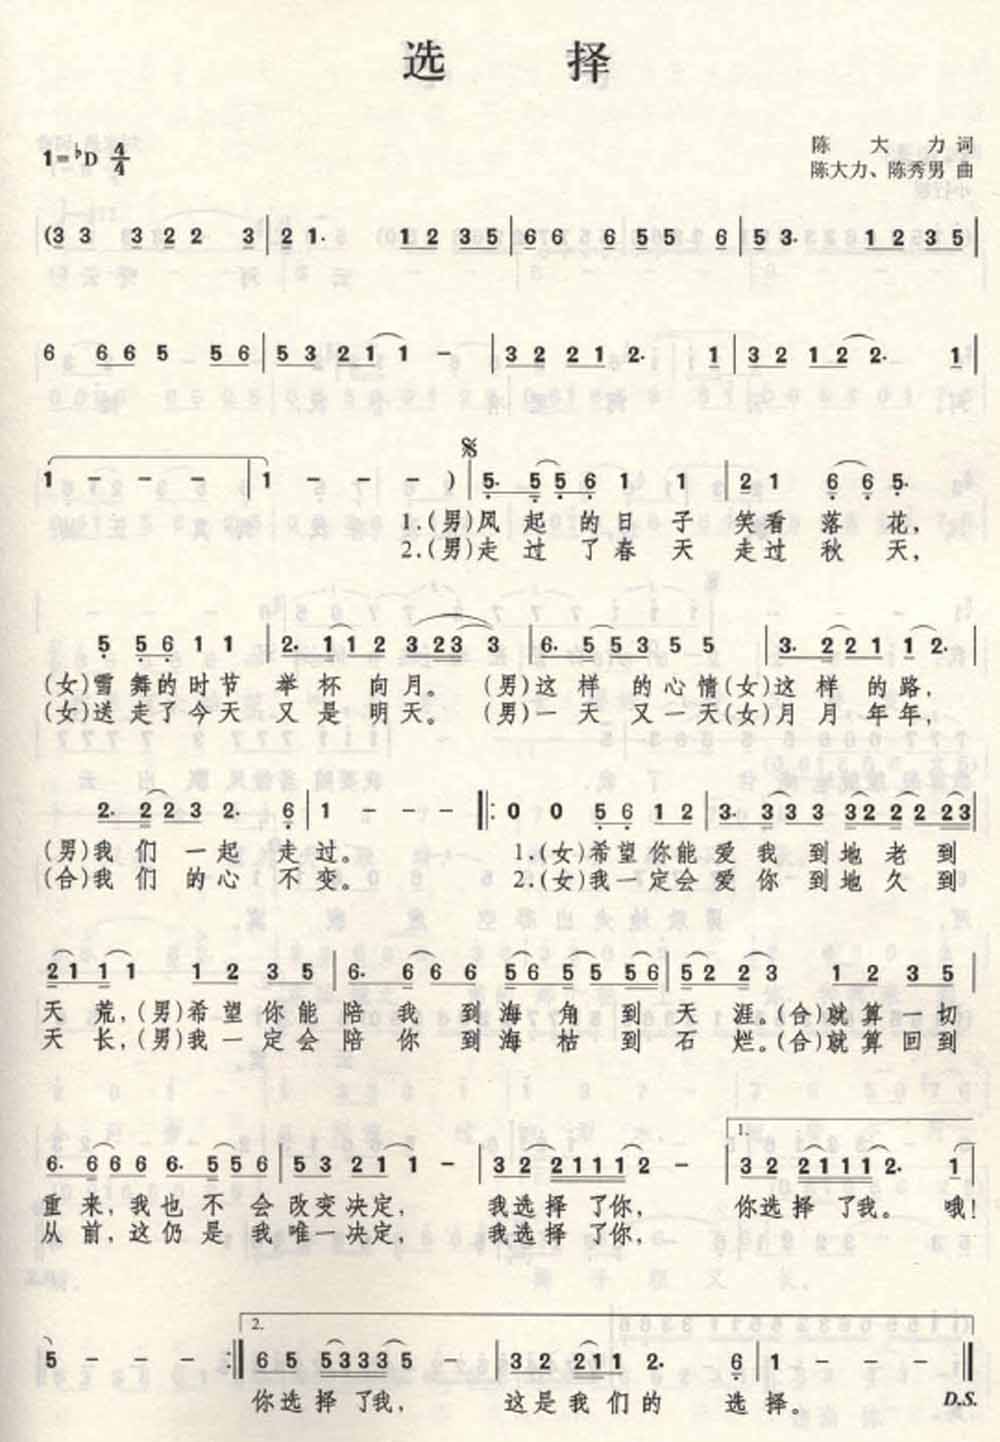 选 择
1=♭D 4/4
陈 大 力 词
陈大力、陈秀男 曲
(33 322 3 | 21· 1235 | 66 6 55 6 | 53· 1235 |
6 66 5 56 | 53 211 1 - | 32 21 2· 1 | 32 122 2· 1 |
1 - - - | 1 - - - ) | 5· 5561 1 1 | 21 66 5·
1.(男)风 起 的 日 子 笑看 落 花,
2.(男)走 过 了 春 天 走过 秋 天,
5 5611 | 2· 112 323 3 | 6· 55355 | 3· 2211 12·
(女)雪 舞的 时节 举 杯 向 月。 (男)这 样 的 心情(女)这 样 的 路,
(女)送 走了 今天 又 是 明天。 (男)一 天 又 一天(女)月 月 年年,
2· 223 2· 6 | 1 - - - |: 0 0 56 12 | 3· 333 32 2223
(男)我 们 一 起 走 过。 1.(女)希望 你能 爱 我 到 地 老 到
(合)我 们 的 心 不 变。 2.(女)我一 定会 爱 你 到 地 久 到
211 1 1 12 35 | 6· 666 56 5556 | 52 23 12 35
天 荒,(男)希 望 你 能 陪 我 到 海 角 到 天 涯。(合)就 算 一 切
天 长,(男)我 一 定 会 陪 你 到 海 枯 到 石 烂。(合)就 算 回 到
6· 666 6· 556 | 53 211 1 - | 32 21111 2 - | 1. 32 21111 2· 1
重 来,我 也 不 会 改变 决定, 我选择 了你, 你选择 了我。 哦!
从 前,这 仍 是 我 唯一 决定, 我选择 了你,
5 - - - :| 2. 65 53335 - | 32 211 2· 6 | 1 - - - ||
你选择 了我, 这是 我们的 选择。 D.S.